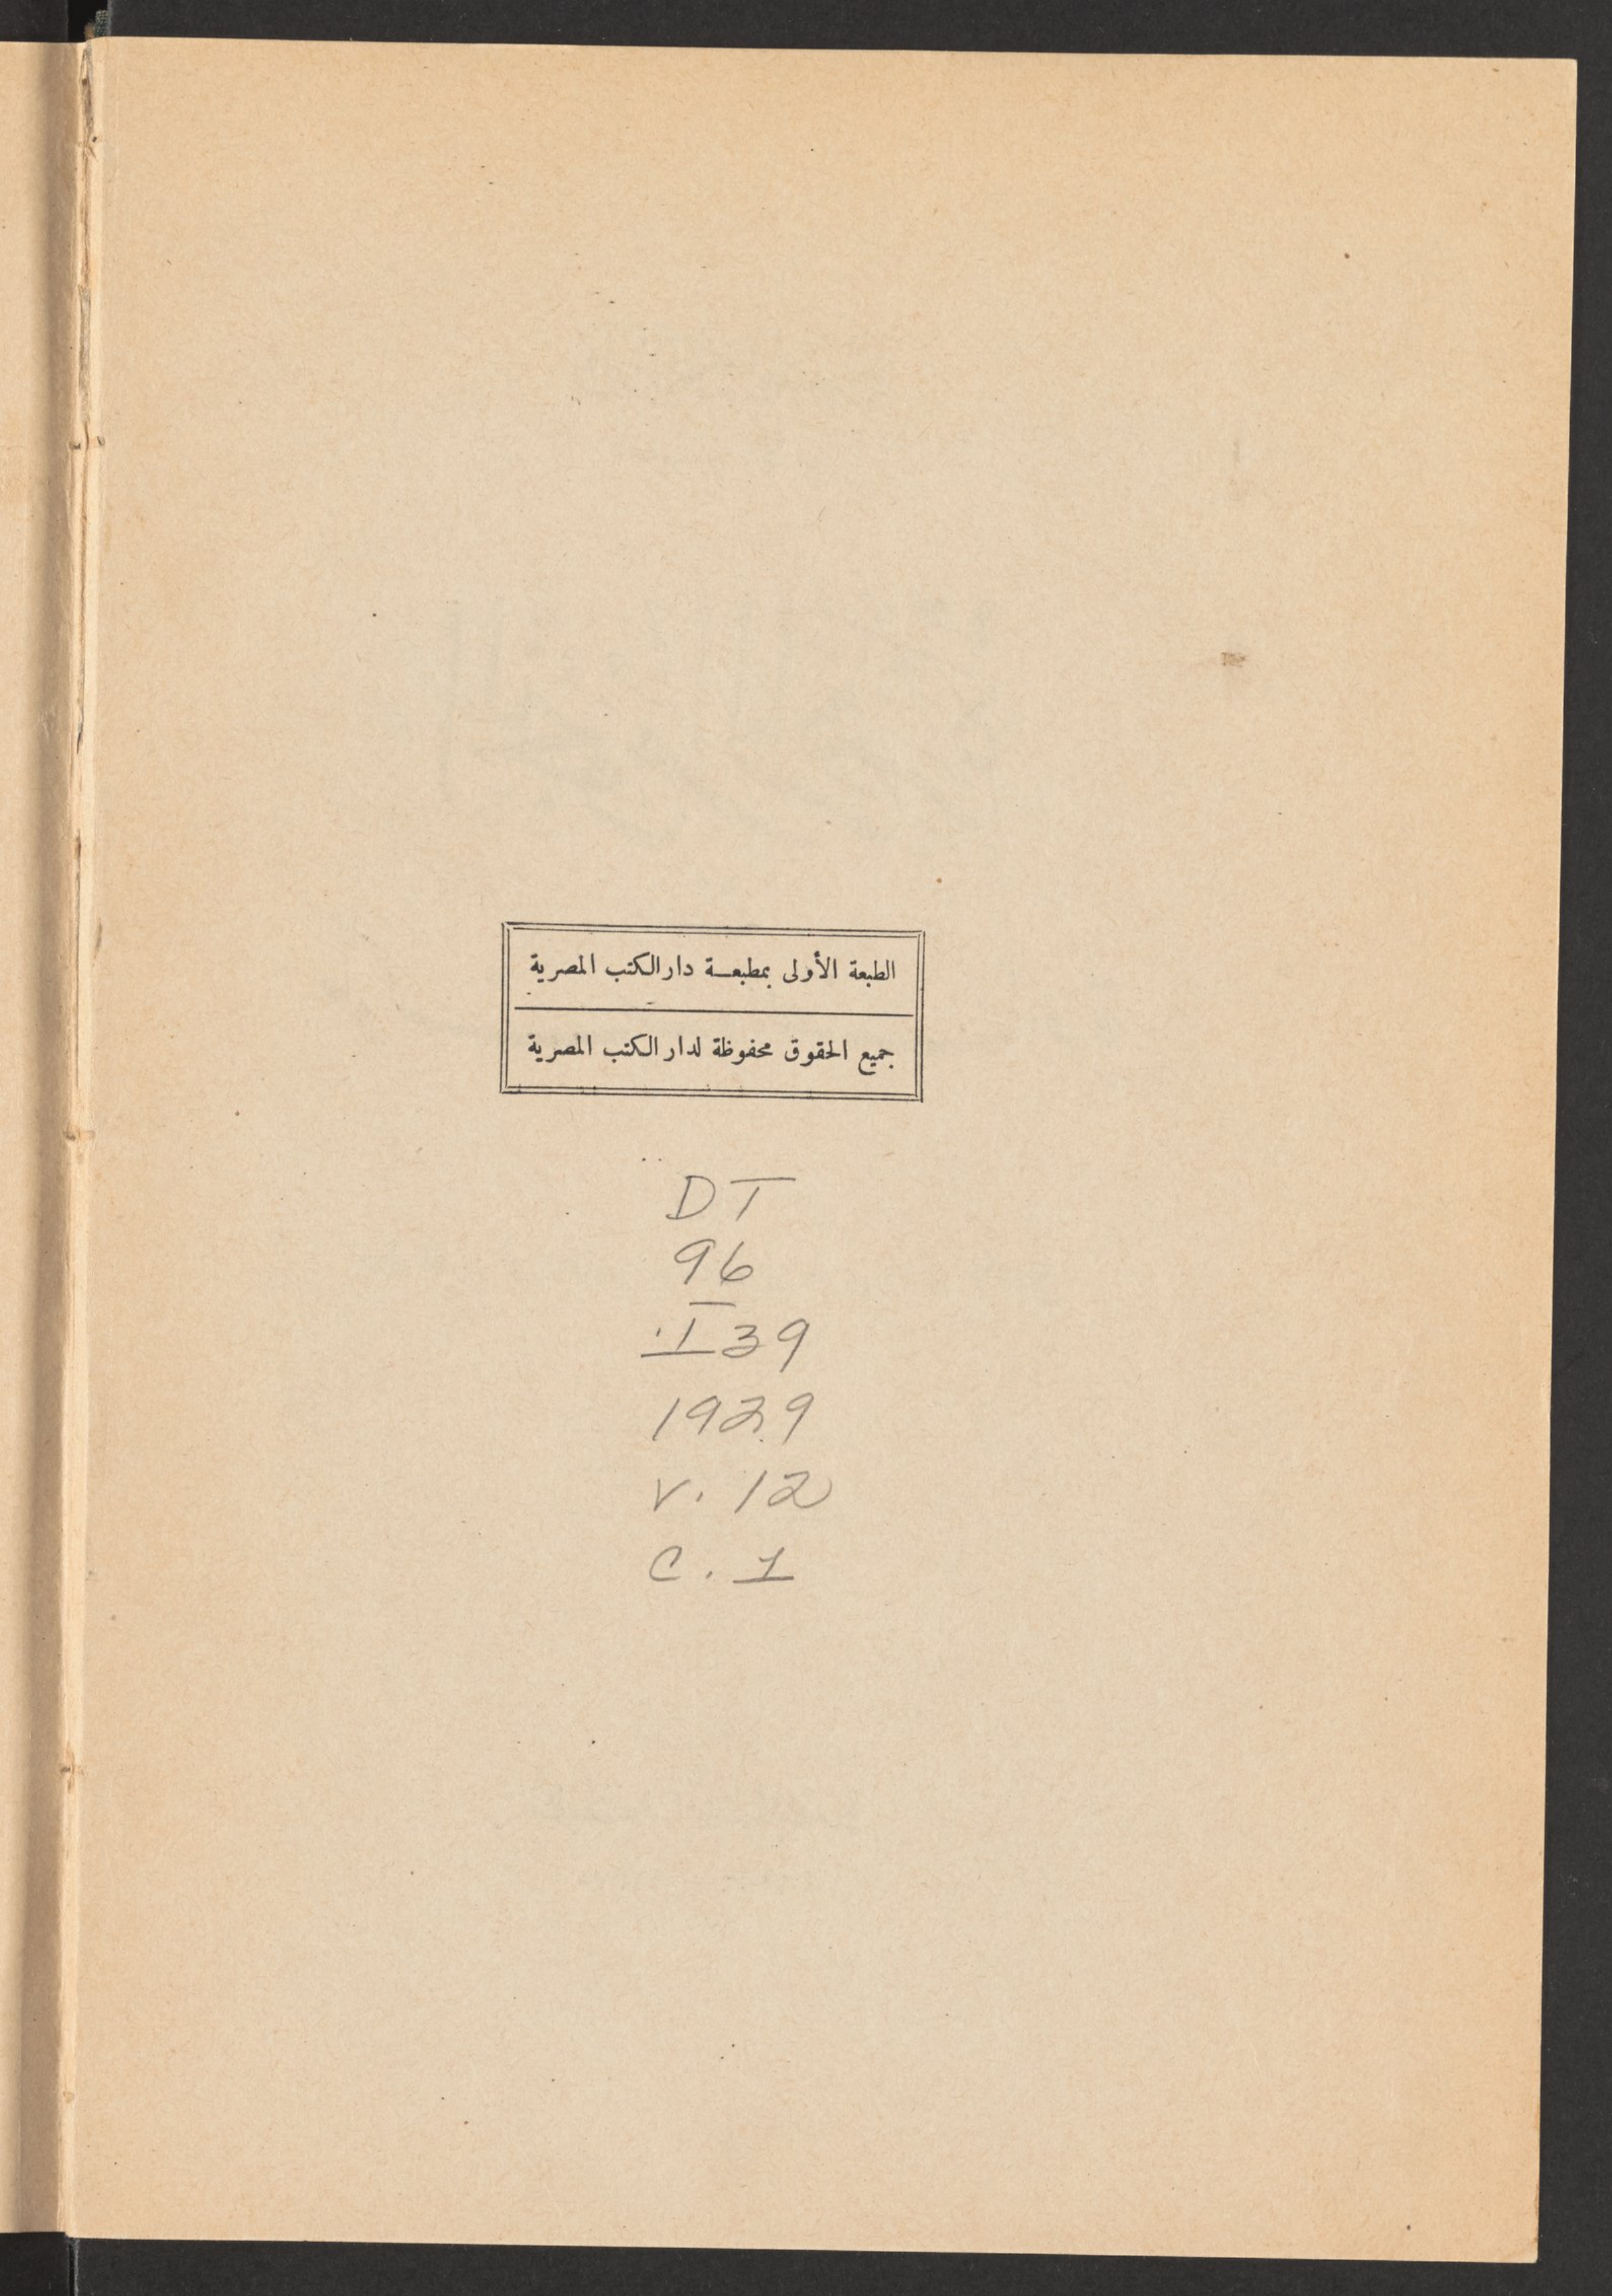 الطبعة الأولى بمطبعة دار الكتب المصرية
جميع الحقوق محفوظة لدار الكتب المصرية
DT
96
.I39
1929
v. 12
c. 1